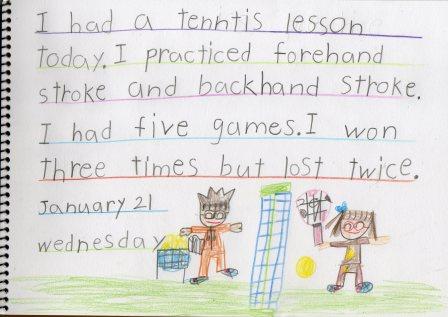 I had a tenntis lesson
today. I practiced forehand
stroke and backhand stroke.
I had five games. I won
three times but lost twice.
January 21
wednesday